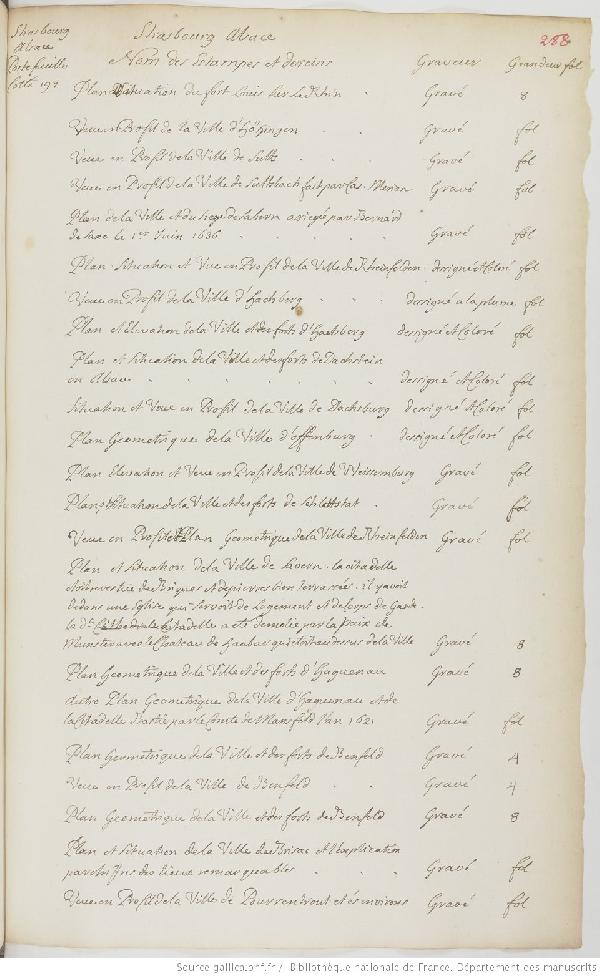 Strasbourg
Alsace
Portefeuille
Cotté 197
Strasbourg Alsace
288
Nom des Estampes et desseins Graveur Grandeur fol
Plan Situation du fort Louis sur le Rhin Gravé 8
Veue en Profil de la Ville d'Gravé fol
Veue en Profil de la Ville de Sultz Gravé fol
Veue en Profil de la Ville de Sultzbach fait par Cas. Merian Gravé fol
Plan de la Ville et du siege de Savern assiegé par Bernard
de Saxe le 1er Juin 1636 Gravé fol
Plan Situation et Veue en Profil de la Ville de Rheinfelden dessigné et Coloré fol
Veue en Profil de la Ville d'Hachberg dessigné a la plume fol
Plan et Elevation de la Ville et des forts d'Hachberg dessigné et Coloré fol
Plan et Situation de la Ville et des forts de Dachstein
en Alsace dessigné et Coloré fol
Situation et Veue en Profil de la Ville de Dachsburg dessigné et Coloré fol
Plan Geometrique de la Ville d'offenburg dessigné et Coloré fol
Plan Elevation et Veue en Profil de la Ville de Weissemburg Gravé fol
Plan et Situation de la Ville et des forts de Schlettstat Gravé fol
Veue en Profil et Plan Geometrique de la Ville de Rheinfelden Gravé fol
Plan et Situation de la Ville de Severn. la citadelle
est revestue de Briques et de pierres bien terrassées. il y avoit
dedans une Eglise qui servoit de Logement et de Corps de Garde.
la de. Cathedrale Citadelle a eté demolie par la Paix de
Munster avec le Chateau de qui etoit au dessus de la Ville Gravé 8
Plan Geometrique de la Ville et des forts d'Haguenau Gravé 8
Autre Plan Geometrique de la Ville d'Haguenau et de
la Citadelle Bastie par le Comte de Mansfeld l'an 1621 Gravé fol
Plan Geometrique de la Ville et des forts de Benfeld Gravé 4
Veue en Profil de la Ville de Benfeld Gravé 4
Plan Geometrique de la Ville et des forts de Benfeld Gravé 8
Plan et Situation de la Ville de Brisac et l'explication
par chiffres des lieux remarquables Gravé fol
Veue en Profil de la Ville de Pourrentrout et és environs Gravé fol
Source gallica.bnf.fr / Bibliothèque nationale de France. Département des manuscrits